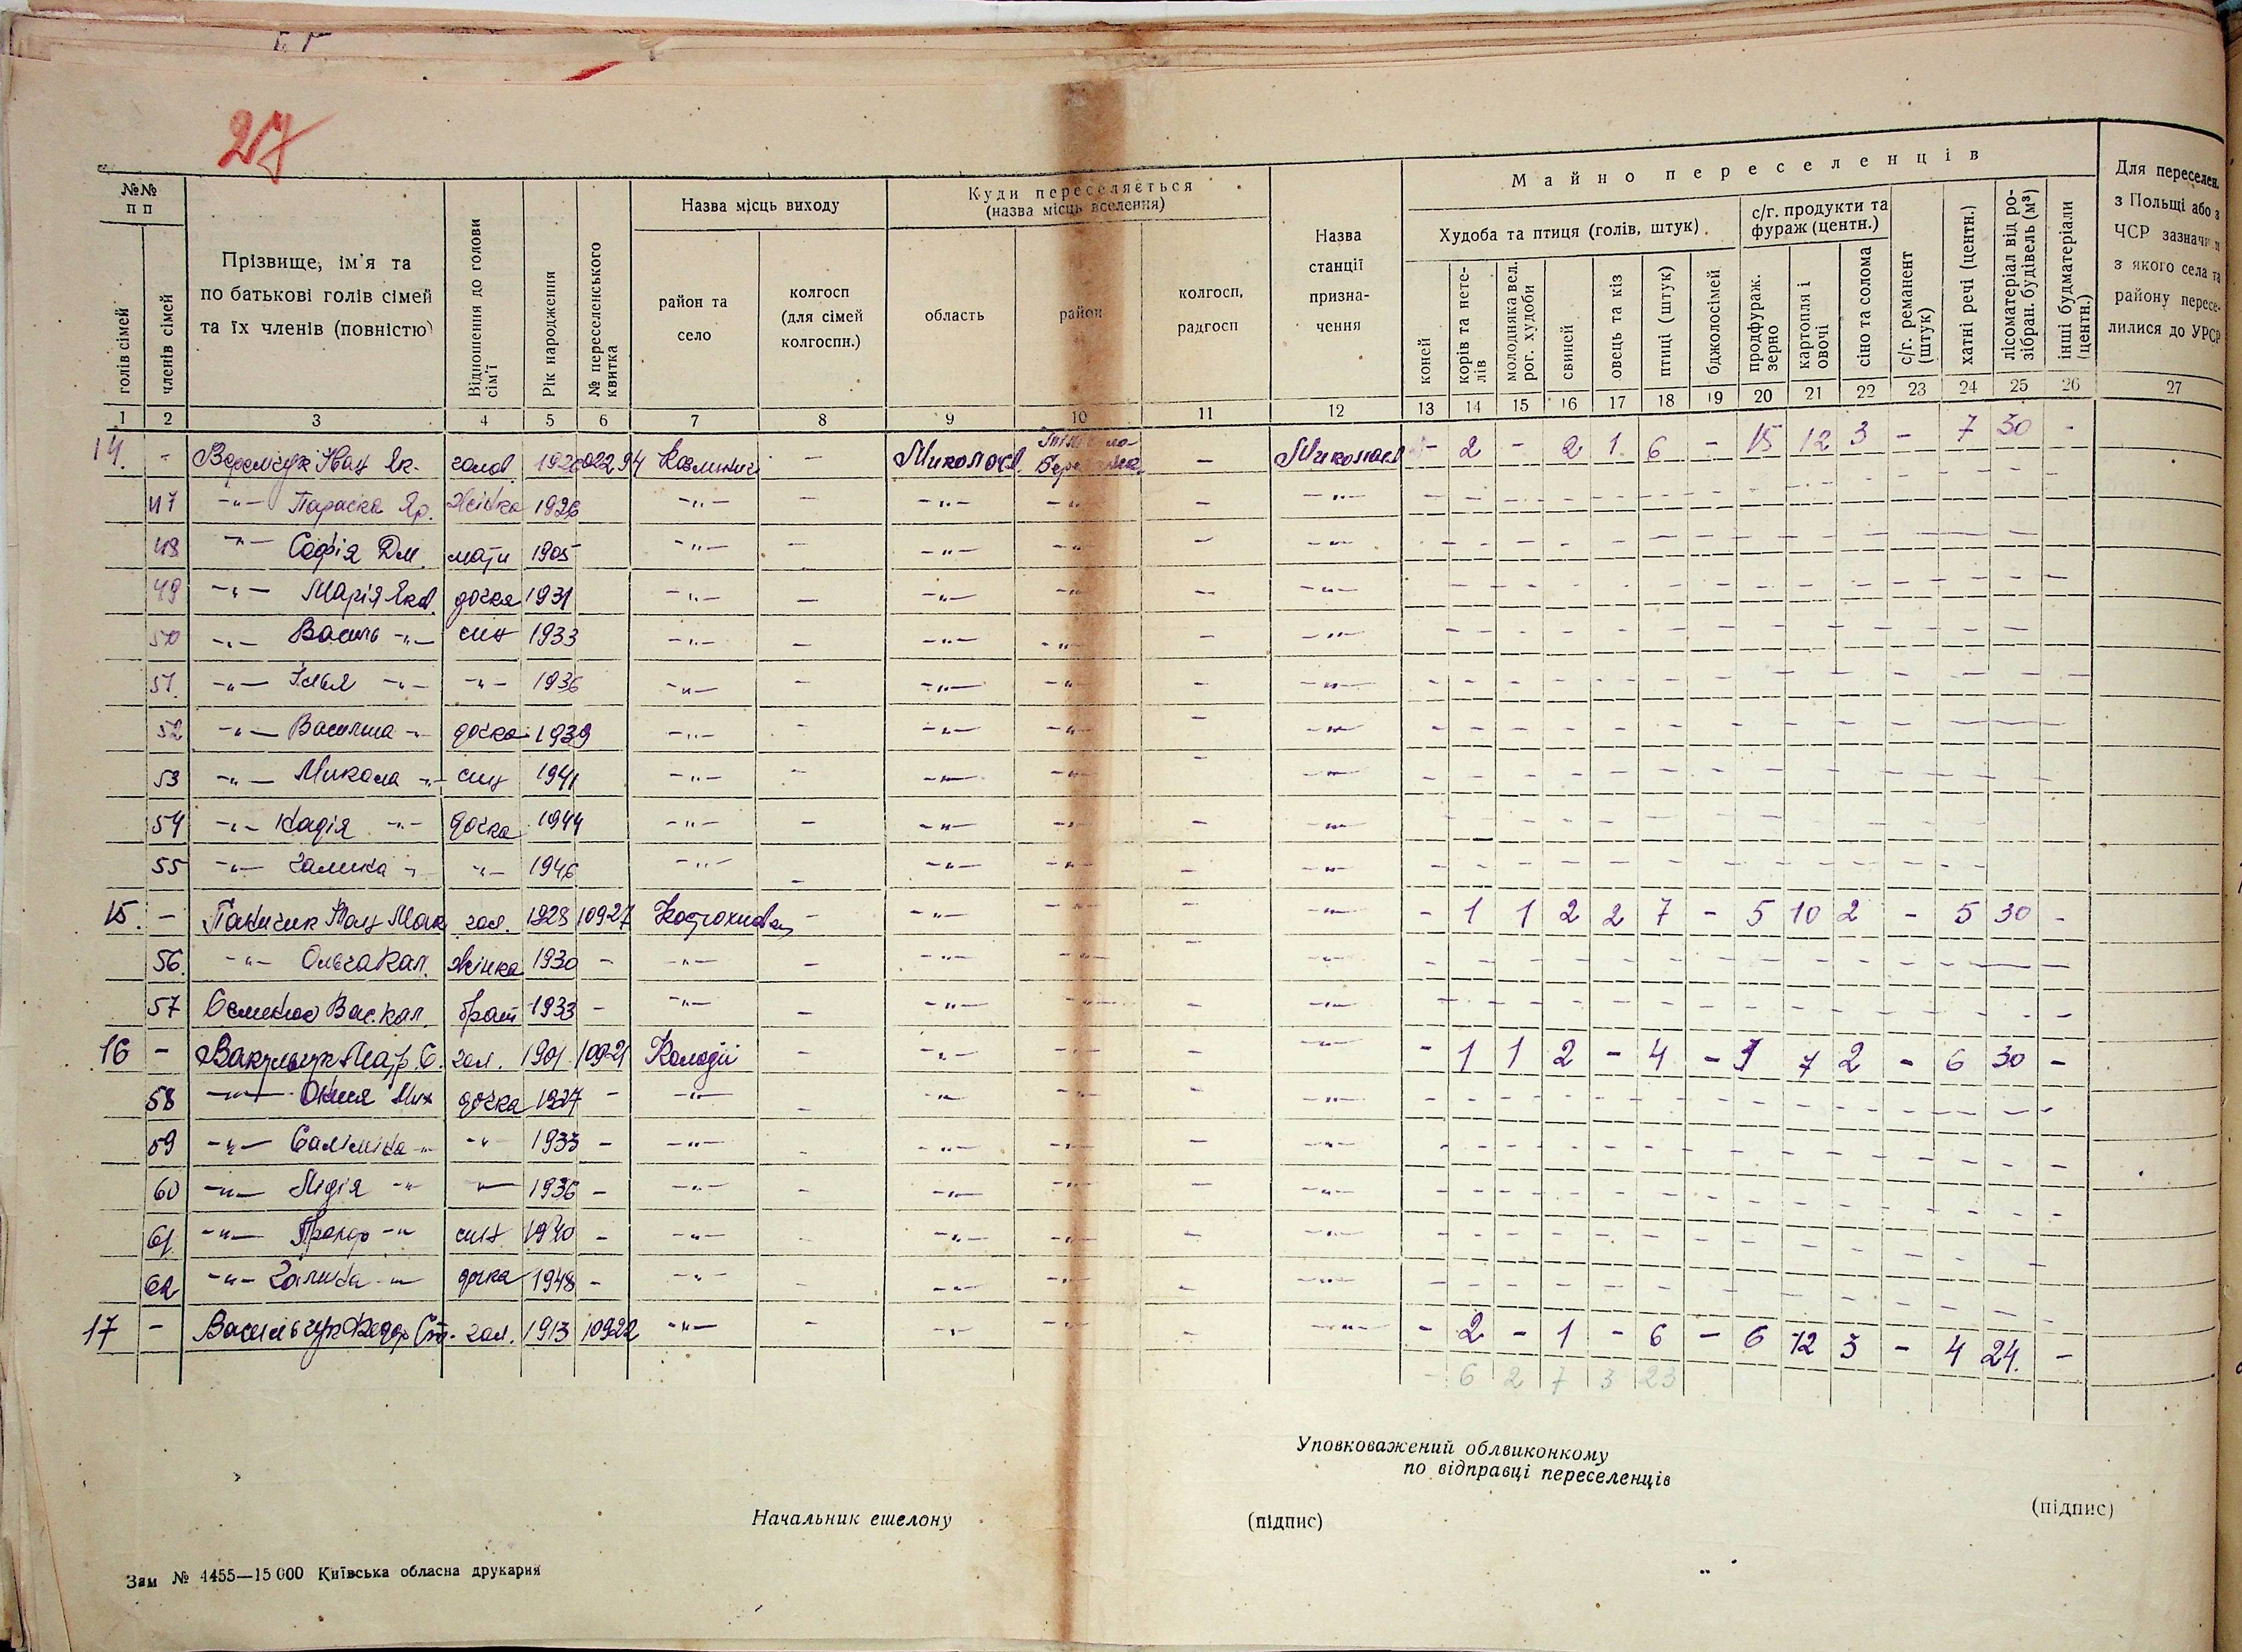 27
№№ п п
Прізвище, ім'я та по батькові голів сімей та їх членів (повністю)
Відношення до голови сім'ї
Рік народження
№ переселенського квитка
Назва місць виходу
Куди переселяється (назва місць вселення)
Назва станції призна- чення
Майно переселенців
Для переселен. з Польщі або з ЧСР зазначити з якого села та району пересе- лилися до УРСР
голів сімей
членів сімей
район та село
колгосп (для сімей колгоспн.)
область
район
колгосп, радгосп
Худоба та птиця (голів, штук)
с/г. продукти та фураж (центн.)
коней
корів та нете- лів
молодняка вел. рог. худоби
свиней
овець та кіз
птиці (штук)
бджолосімей
продфураж. зерно
картопля і овочі
сіно та солома
с/г. реманент (штук)
хатні речі (центн.)
лісоматеріал від ро- зібран. будівель (м³)
інші будматеріали (центн.)
1 2 3 4 5 6 7 8 9 10 11 12 13 14 15 16 17 18 19 20 21 22 23 24 25 26 27
14. - Веремчук Іван Як. голов. - - 2 - 2 1 6 - 15 12 3 - 7 30 -
47 -"- Параска Яр. жінка 1926 -"- - -"- -"- - -"-
48 -"- Софія Дм. мати 1905 -"- - -"- -"- - -"-
49 -"- Марія Яков. дочка 1931 -"- - -"- -"- - -"-
50 -"- Василь -"- син 1933 -"- - -"- -"- - -"-
51. -"- Ілья -"- -"- 1936 -"- - -"- -"- - -"-
52 -"- -"- дочка 1939 -"- - -"- -"- - -"-
53 -"- Микола -"- син 1941 -"- - -"- -"- - -"-
54 -"- Надія -"- дочка 1944 -"- - -"- -"- - -"-
55 -"- Галина -"- -"- 1946 -"- - -"- -"- - -"-
15. - Іван Мак. гол. 1928 10927 - -"- -"- - -"- - 1 1 2 2 7 - 5 10 2 - 5 30 -
56. -"- Ольга Кал. жінка 1930 - -"- - -"- -"- - -"-
57 Вас. Кал. брат 1933 - -"- - -"- -"- - -"-
16 - гол. 1901 10921 Колодії - -"- -"- - -"- - 1 1 2 - 4 - 7 2 - 6 30 -
58 -"- Мих дочка 1927 - -"- - -"- -"- - -"-
59 -"- -"- -"- 1933 - -"- - -"- -"- - -"-
60 -"- Лідія -"- -"- 1936 - -"- - -"- -"- - -"-
61. -"- -"- син 1940 - -"- - -"- -"- - -"-
62 -"- Галина -"- дочка 1948 - -"- - -"- -"- - -"-
17 - Васильчук Федор Ст. гол. 1913 10922 -"- - -"- -"- - -"- - 2 - 1 - 6 - 6 12 3 - 4 24. -
- 6 2 7 3 23
Уповковажений облвиконкому
по відправці переселенців
Начальник ешелону (підпис) (підпис)
Зам № 4455—15 000 Київська обласна друкарня